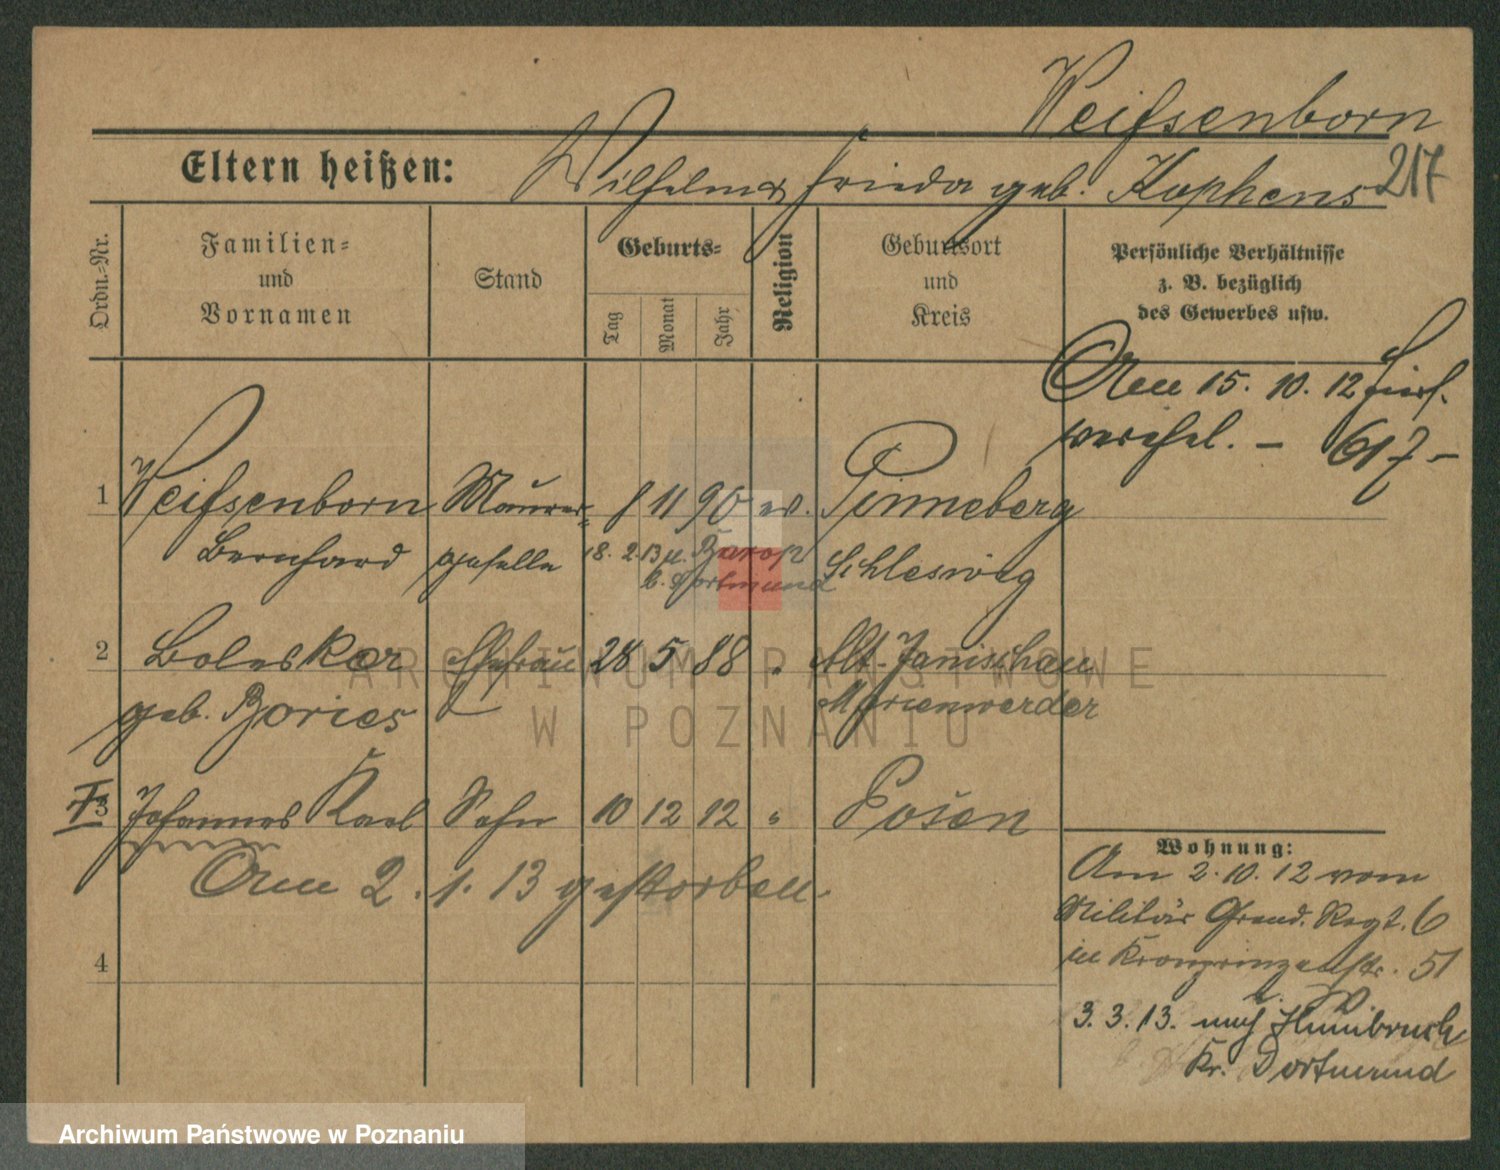 Weißenborn
Eltern heißen: Wilhelm u. Frieda geb. Kophens 217
Ordn.-Nr.
Familien- und Vornamen
Stand
Geburts-
Tag Monat Jahr
Religion
Geburtsort und Kreis
Persönliche Verhältnisse
z. B. bezüglich
des Gewerbes usw.
Am 15. 10. 12
– 617 –
1 Weißenborn Maurer- 8 11 90 ev. Pinneberg
Bernhard geselle 18. 2. 13 n. Barop Schleswig
b. Dortmund
2 Boleskar Ehefrau 28 5 88 " Alt-Janischau
geb. Bories Marienwerder
† 3 Johannes Karl Sohn 10 12 12 " Posen
Am 2. 1. 13 gestorben.
4
Wohnung:
Am 2. 10. 12 vom
Militär Grend. Regt. 6
in Kronprinzenstr. 51
b. W.
3. 3. 13. nach Hombruch
Kr. Dortmund
ARCHIWUM PAŃSTWOWE
W POZNANIU
Archiwum Państwowe w Poznaniu